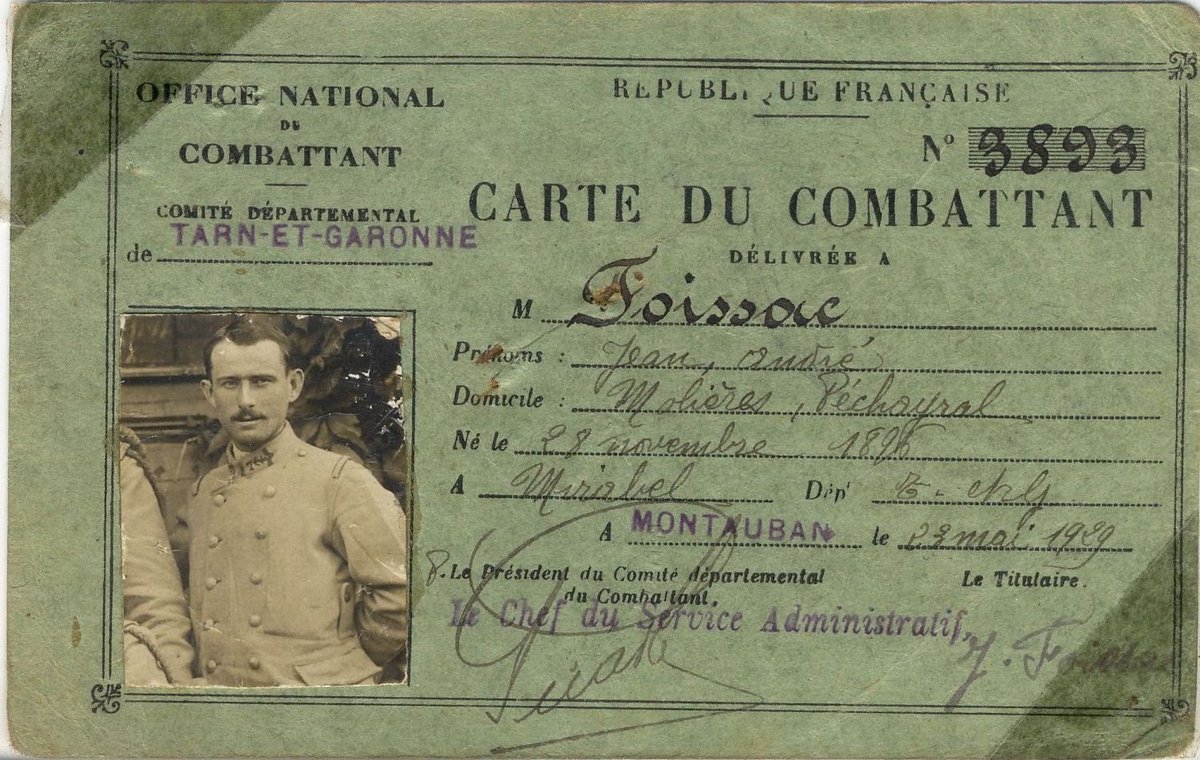 OFFICE NATIONAL
DU
COMBATTANT
COMITÉ DÉPARTEMENTAL
de TARN-ET-GARONNE
RÉPUBLIQUE FRANÇAISE
N° 3893
CARTE DU COMBATTANT
DÉLIVRÉE A
M Foissac
Prénoms : Jean, André
Domicile : Molières, Péchayral
Né le 28 novembre 1896
A Mirabel Dépt T. et G
A MONTAUBAN le 23 mai 1929
P. Le Président du Comité départemental
du Combattant.
Le Titulaire.
Le Chef du Service Administratif,
J. Foissac